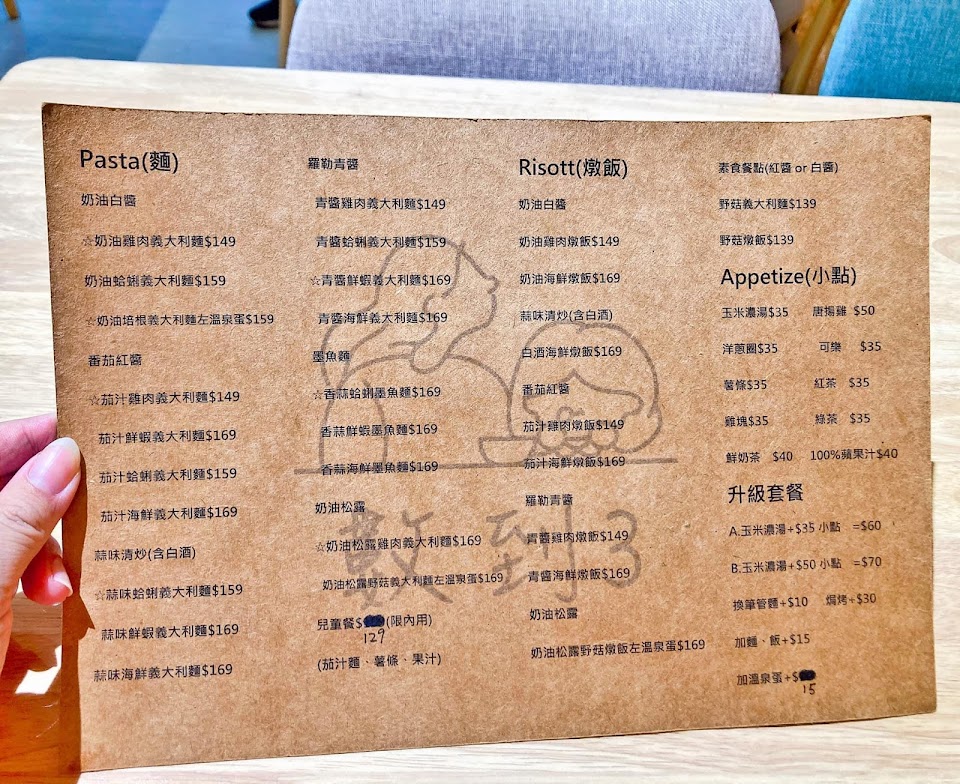 Pasta(麵)
奶油白醬
☆奶油雞肉義大利麵$149
奶油蛤蜊義大利麵$159
☆奶油培根義大利麵左溫泉蛋$159
番茄紅醬
☆茄汁雞肉義大利麵$149
茄汁鮮蝦義大利麵$169
茄汁蛤蜊義大利麵$159
茄汁海鮮義大利麵$169
蒜味清炒(含白酒)
☆蒜味蛤蜊義大利麵$159
蒜味鮮蝦義大利麵$169
蒜味海鮮義大利麵$169
羅勒青醬
青醬雞肉義大利麵$149
青醬蛤蜊義大利麵$159
☆青醬鮮蝦義大利麵$169
青醬海鮮義大利麵$169
墨魚麵
☆香蒜蛤蜊墨魚麵$169
香蒜鮮蝦墨魚麵$169
香蒜海鮮墨魚麵$169
奶油松露
☆奶油松露雞肉義大利麵$169
奶油松露野菇義大利麵左溫泉蛋$169
兒童餐$(限內用)
129
(茄汁麵、薯條、果汁)
數到3
Risott(燉飯)
奶油白醬
奶油雞肉燉飯$149
奶油海鮮燉飯$169
蒜味清炒(含白酒)
白酒海鮮燉飯$169
番茄紅醬
茄汁雞肉燉飯$149
茄汁海鮮燉飯$169
羅勒青醬
青醬雞肉燉飯$149
青醬海鮮燉飯$169
奶油松露
奶油松露野菇燉飯左溫泉蛋$169
素食餐點(紅醬 or 白醬)
野菇義大利麵$139
野菇燉飯$139
Appetize(小點)
玉米濃湯$35 唐揚雞 $50
洋蔥圈$35 可樂 $35
薯條$35 紅茶 $35
雞塊$35 綠茶 $35
鮮奶茶 $40 100%蘋果汁$40
升級套餐
A.玉米濃湯+$35 小點 =$60
B.玉米濃湯+$50 小點 =$70
換筆管麵+$10 焗烤+$30
加麵、飯+$15
加溫泉蛋+$
15